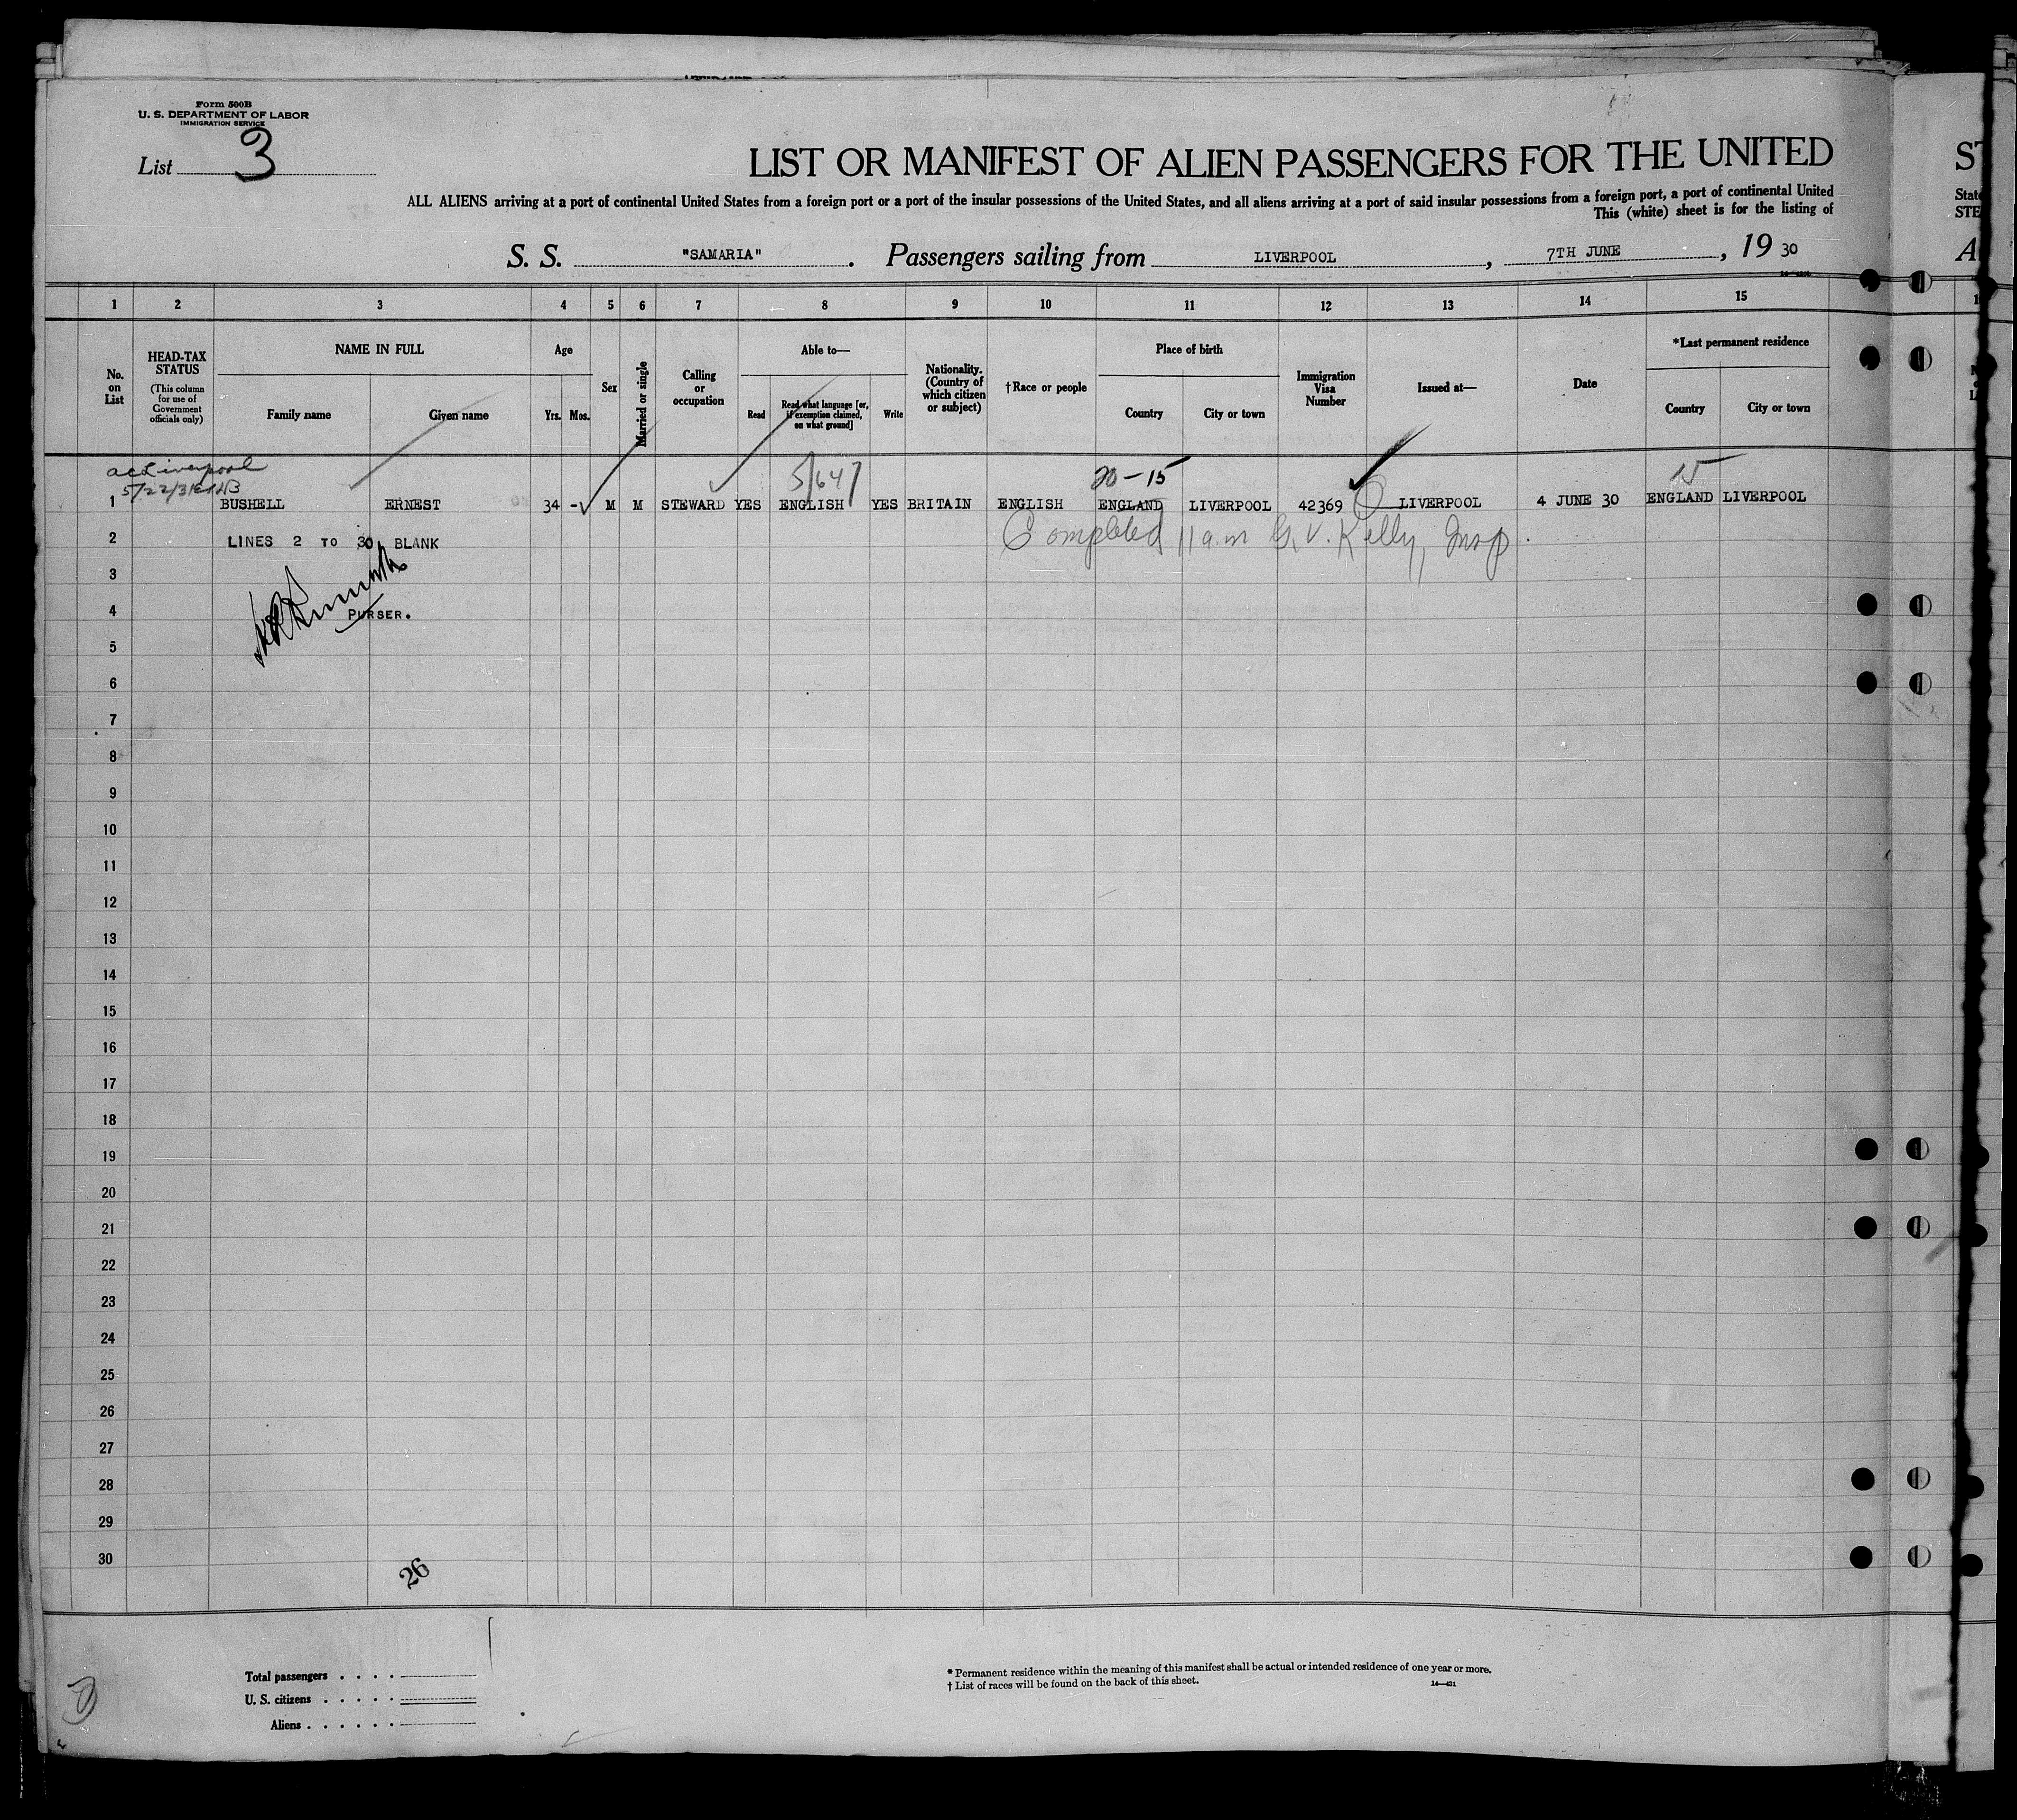 Form 500B
U. S. DEPARTMENT OF LABOR
IMMIGRATION SERVICE
List 3
LIST OR MANIFEST OF ALIEN PASSENGERS FOR THE UNITED
ALL ALIENS arriving at a port of continental United States from a foreign port or a port of the insular possessions of the United States, and all aliens arriving at a port of said insular possessions from a foreign port, a port of continental United
This (white) sheet is for the listing of
S. S. "SAMARIA". Passengers sailing from LIVERPOOL, 7TH JUNE, 19 30
1 2 3 4 5 6 7 8 9 10 11 12 13 14 15
No. on List
HEAD-TAX STATUS
(This column for use of Government officials only)
NAME IN FULL
Family name
Given name
Age
Yrs. Mos.
Sex
Married or single
Calling or occupation
Able to—
Read
Read what language [or, if exemption claimed, on what ground]
Write
Nationality. (Country of which citizen or subject)
†Race or people
Place of birth
Country
City or town
Immigration Visa Number
Issued at—
Date
*Last permanent residence
Country
City or town
Liverpool
5/647 20-15 15
1 BUSHELL ERNEST 34 - M M STEWARD YES ENGLISH YES BRITAIN ENGLISH ENGLAND LIVERPOOL 42369 LIVERPOOL 4 JUNE 30 ENGLAND LIVERPOOL
2 LINES 2 TO 30 BLANK Completed 11 am G. V. Kelly, Insp.
3
4 PURSER.
5
6
7
8
9
10
11
12
13
14
15
16
17
18
19
20
21
22
23
24
25
26
27
28
29
30
26
Total passengers . . . .
U. S. citizens . . . . .
Aliens . . . . . .
* Permanent residence within the meaning of this manifest shall be actual or intended residence of one year or more.
† List of races will be found on the back of this sheet.
14—431